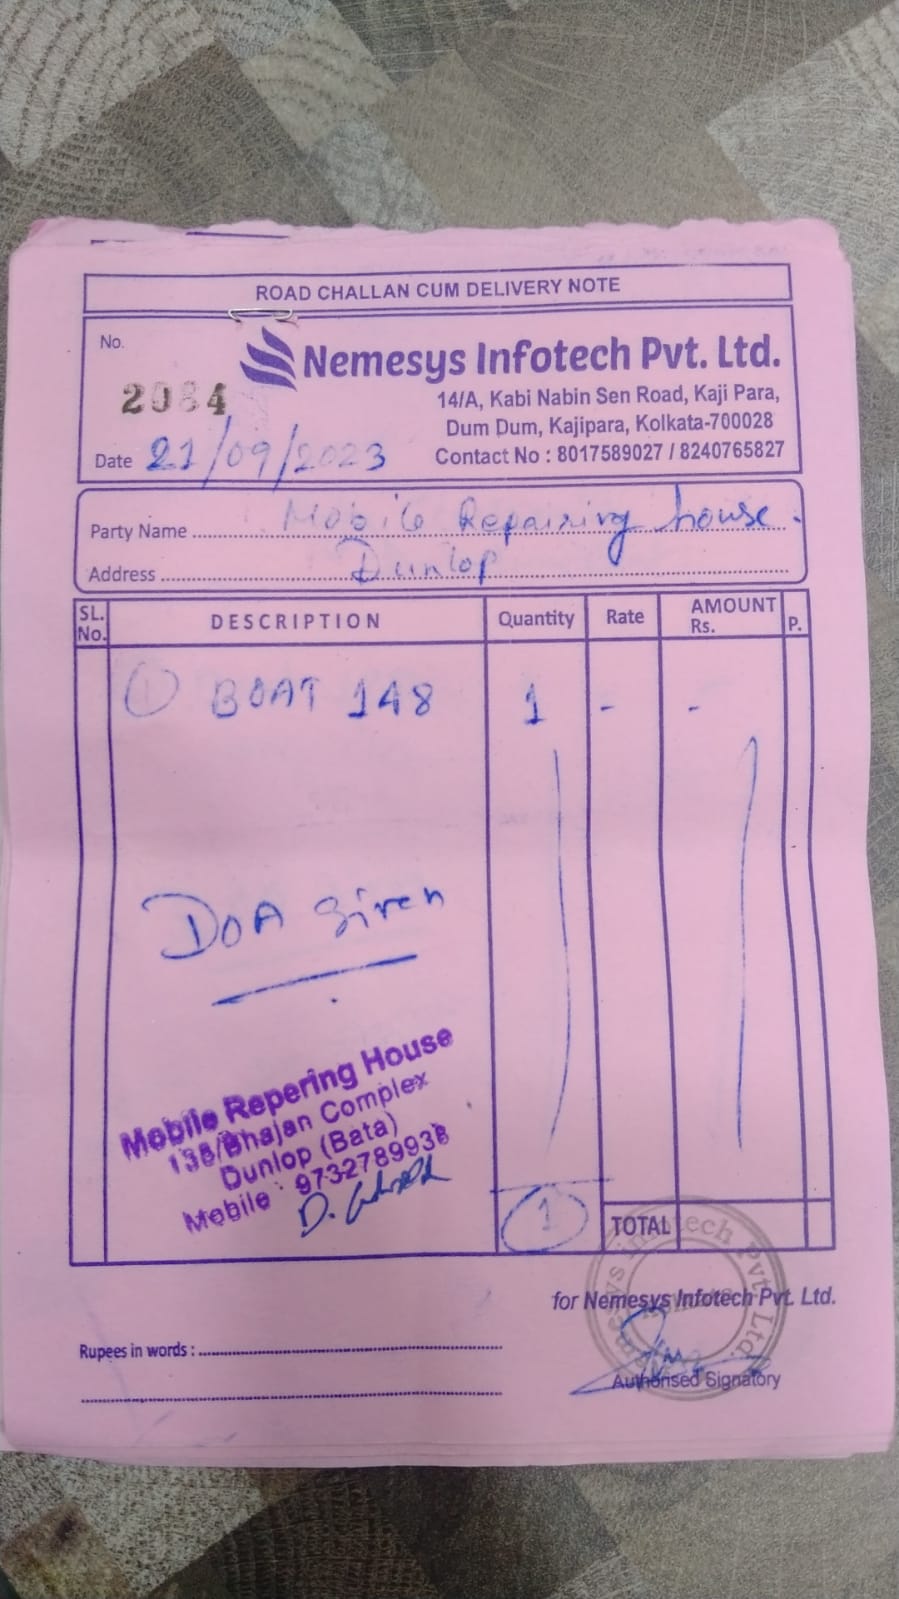 ROAD CHALLAN CUM DELIVERY NOTE
No.
2084
Nemesys Infotech Pvt. Ltd.
14/A, Kabi Nabin Sen Road, Kaji Para,
Dum Dum, Kajipara, Kolkata-700028
Contact No : 8017589027 / 8240765827
Date 21/09/2023
Party Name Mobile Repairing house.
Address Dunlop
SL. No. DESCRIPTION Quantity Rate AMOUNT Rs. P.
① BOAT 148 1 - -
DOA given
Mobile Repering House
138/Bhajan Complex
Dunlop (Bata)
Mobile : 9732789938
D.
1
TOTAL
for Nemesys Infotech Pvt. Ltd.
Nemesys Infotech Pvt. Ltd.
Rupees in words :
Authorised Signatory